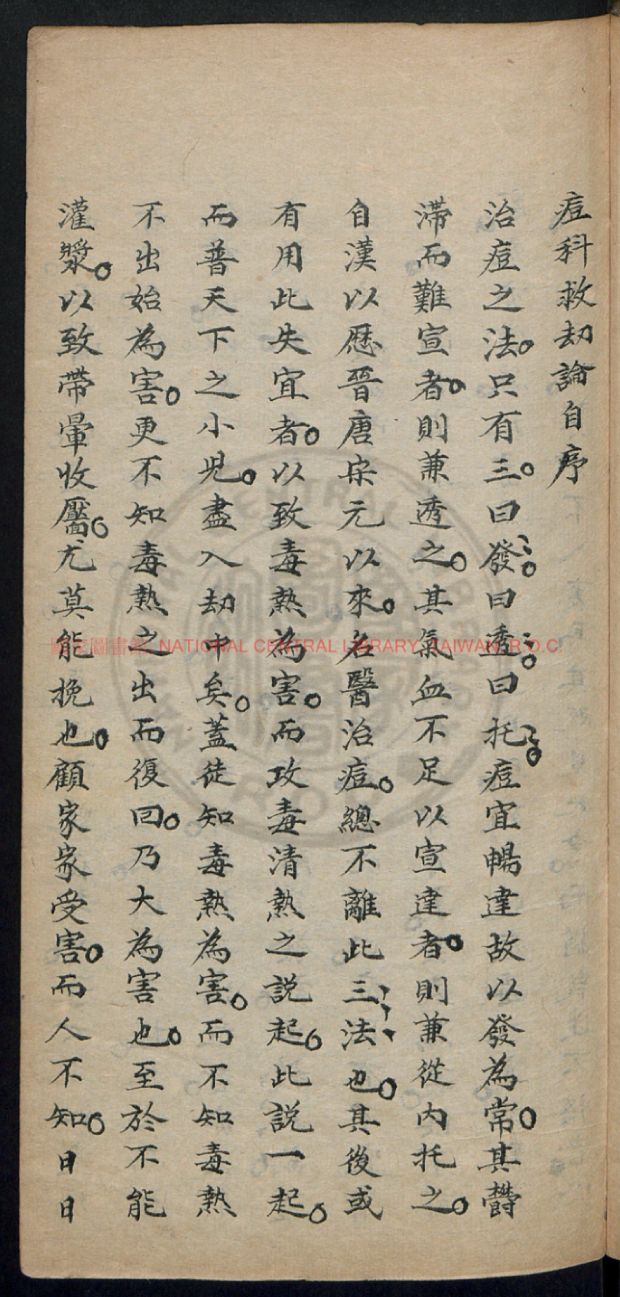 痘科救劫論自序
治痘之法。只有三。曰發。曰透。曰托。痘宜暢達故以發為常。其欝
滯而難宣者。則兼透之。其氣血不足以宣達者。則兼從內托之。
自漢以歷晉唐宋元以來。名醫治痘。總不離此三法也。其後或
有用此失宜者。以致毒熱為害。而攻毒清熱之説起。此説一起。
而普天下之小児。盡入劫中矣。蓋徒知毒熱為害。而不知毒熱
不出始為害。更不知毒熱之出而復回。乃大為害也。至於不能
灌漿。以致帶暈收靨。尤莫能挽也。顧家家受害。而人不知。日日
國家圖書館 NATIONAL CENTRAL LIBRARY, TAIWAN, R.O.C